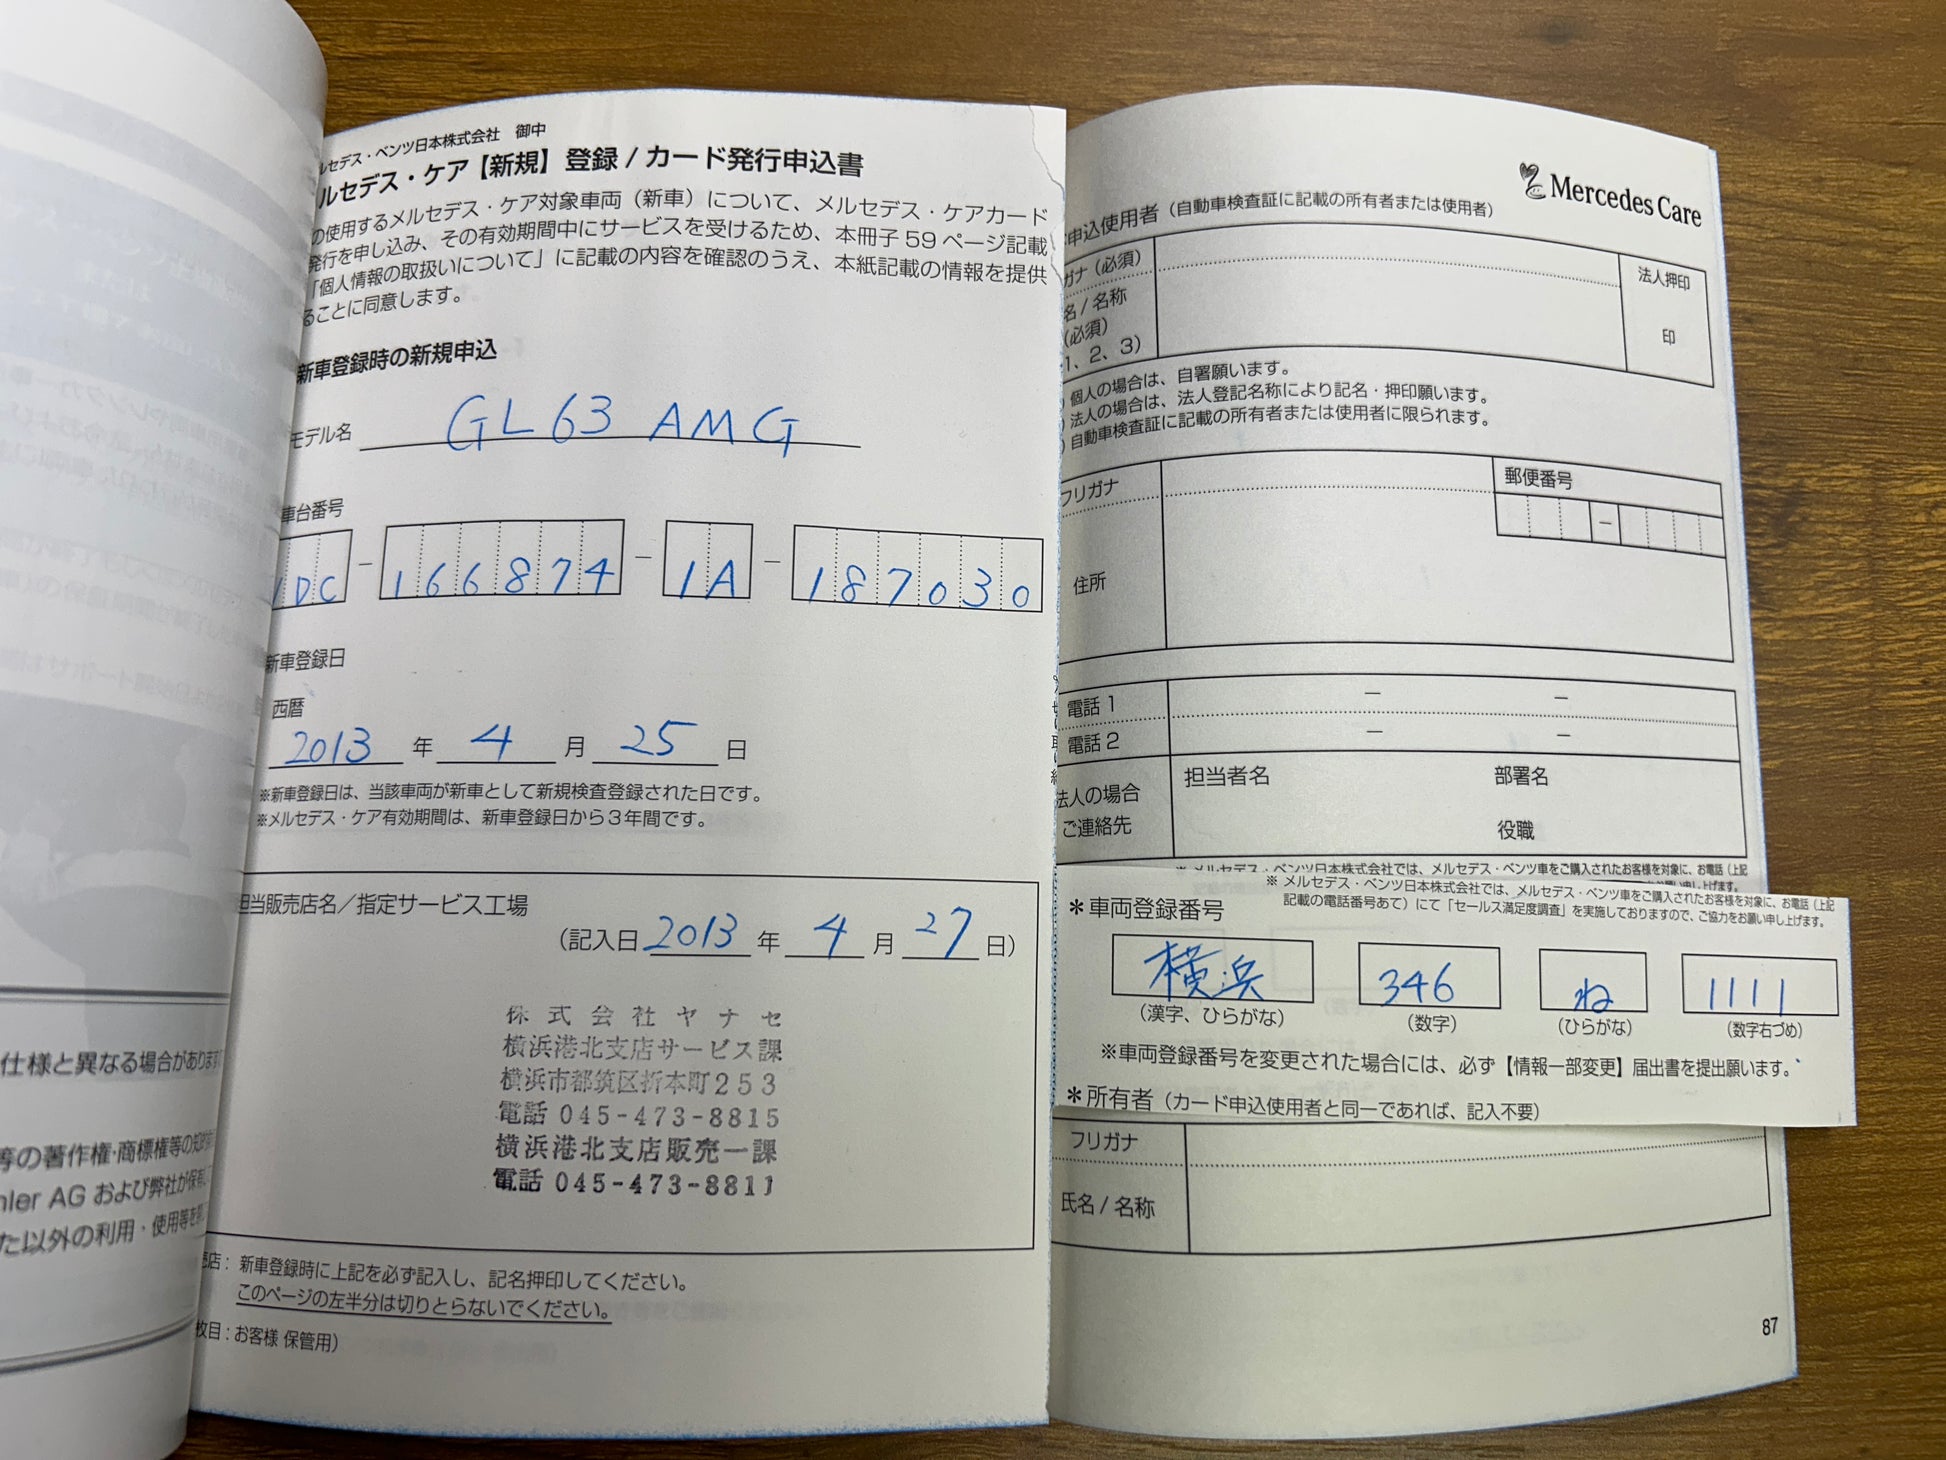 仕様と異なる場合があります
等の著作権・商標権等の知的
hler AG および弊社が保有
た以外の利用・使用等を
ルセデス・ベンツ日本株式会社 御中
ルセデス・ケア【新規】登録 / カード発行申込書
の使用するメルセデス・ケア対象車両（新車）について、メルセデス・ケアカード
発行を申し込み、その有効期間中にサービスを受けるため、本冊子 59 ページ記載
「個人情報の取扱いについて」に記載の内容を確認のうえ、本紙記載の情報を提供
ることに同意します。
新車登録時の新規申込
モデル名 GL63 AMG
車台番号
DC - 166874 - 1A - 187030
新車登録日
西暦
2013 年 4 月 25 日
※新車登録日は、当該車両が新車として新規検査登録された日です。
※メルセデス・ケア有効期間は、新車登録日から３年間です。
担当販売店名／指定サービス工場
（記入日 2013 年 4 月 27 日）
株式会社ヤナセ
横浜港北支店サービス課
横浜市都筑区折本町２５３
電話 045-473-8815
横浜港北支店販売一課
電話 045-473-8811
売店：新車登録時に上記を必ず記入し、記名押印してください。
このページの左半分は切りとらないでください。
枚目：お客様 保管用）
Mercedes Care
申込使用者（自動車検査証に記載の所有者または使用者）
ガナ（必須）
法人押印
名 / 名称
（必須）
1、2、3）
印
個人の場合は、自署願います。
法人の場合は、法人登記名称により記名・押印願います。
）自動車検査証に記載の所有者または使用者に限られます。
フリガナ
郵便番号
－
住所
電話 1 － －
電話 2 － －
法人の場合
ご連絡先
担当者名 部署名
役職
※ メルセデス・ベンツ日本株式会社では、メルセデス・ベンツ車をご購入されたお客様を対象に、お電話（上記
※ メルセデス・ベンツ日本株式会社では、メルセデス・ベンツ車をご購入されたお客様を対象に、お電話（上記
記載の電話番号あて）にて「セールス満足度調査」を実施しておりますので、ご協力をお願い申し上げます。
＊車両登録番号
横浜 346 ね 1111
（漢字、ひらがな） （数字） （ひらがな） （数字右づめ）
※車両登録番号を変更された場合には、必ず【情報一部変更】届出書を提出願います。
＊所有者（カード申込使用者と同一であれば、記入不要）
フリガナ
氏名 / 名称
87